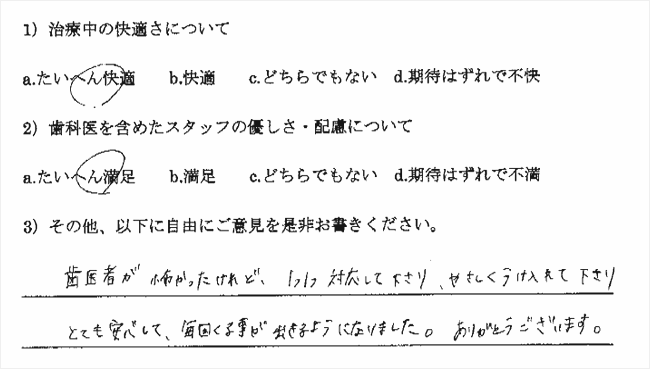 1）治療中の快適さについて
a.たいへん快適　b.快適　c.どちらでもない　d.期待はずれで不快
2）歯科医を含めたスタッフの優しさ・配慮について
a.たいへん満足　b.満足　c.どちらでもない　d.期待はずれで不満
3）その他、以下に自由にご意見を是非お書きください。
歯医者が怖かったけれど、1つ1つ対応して下さり、やさしくうけ入れて下さり
とても安心して、毎回くる事が出きるようになりました。ありがとうございます。